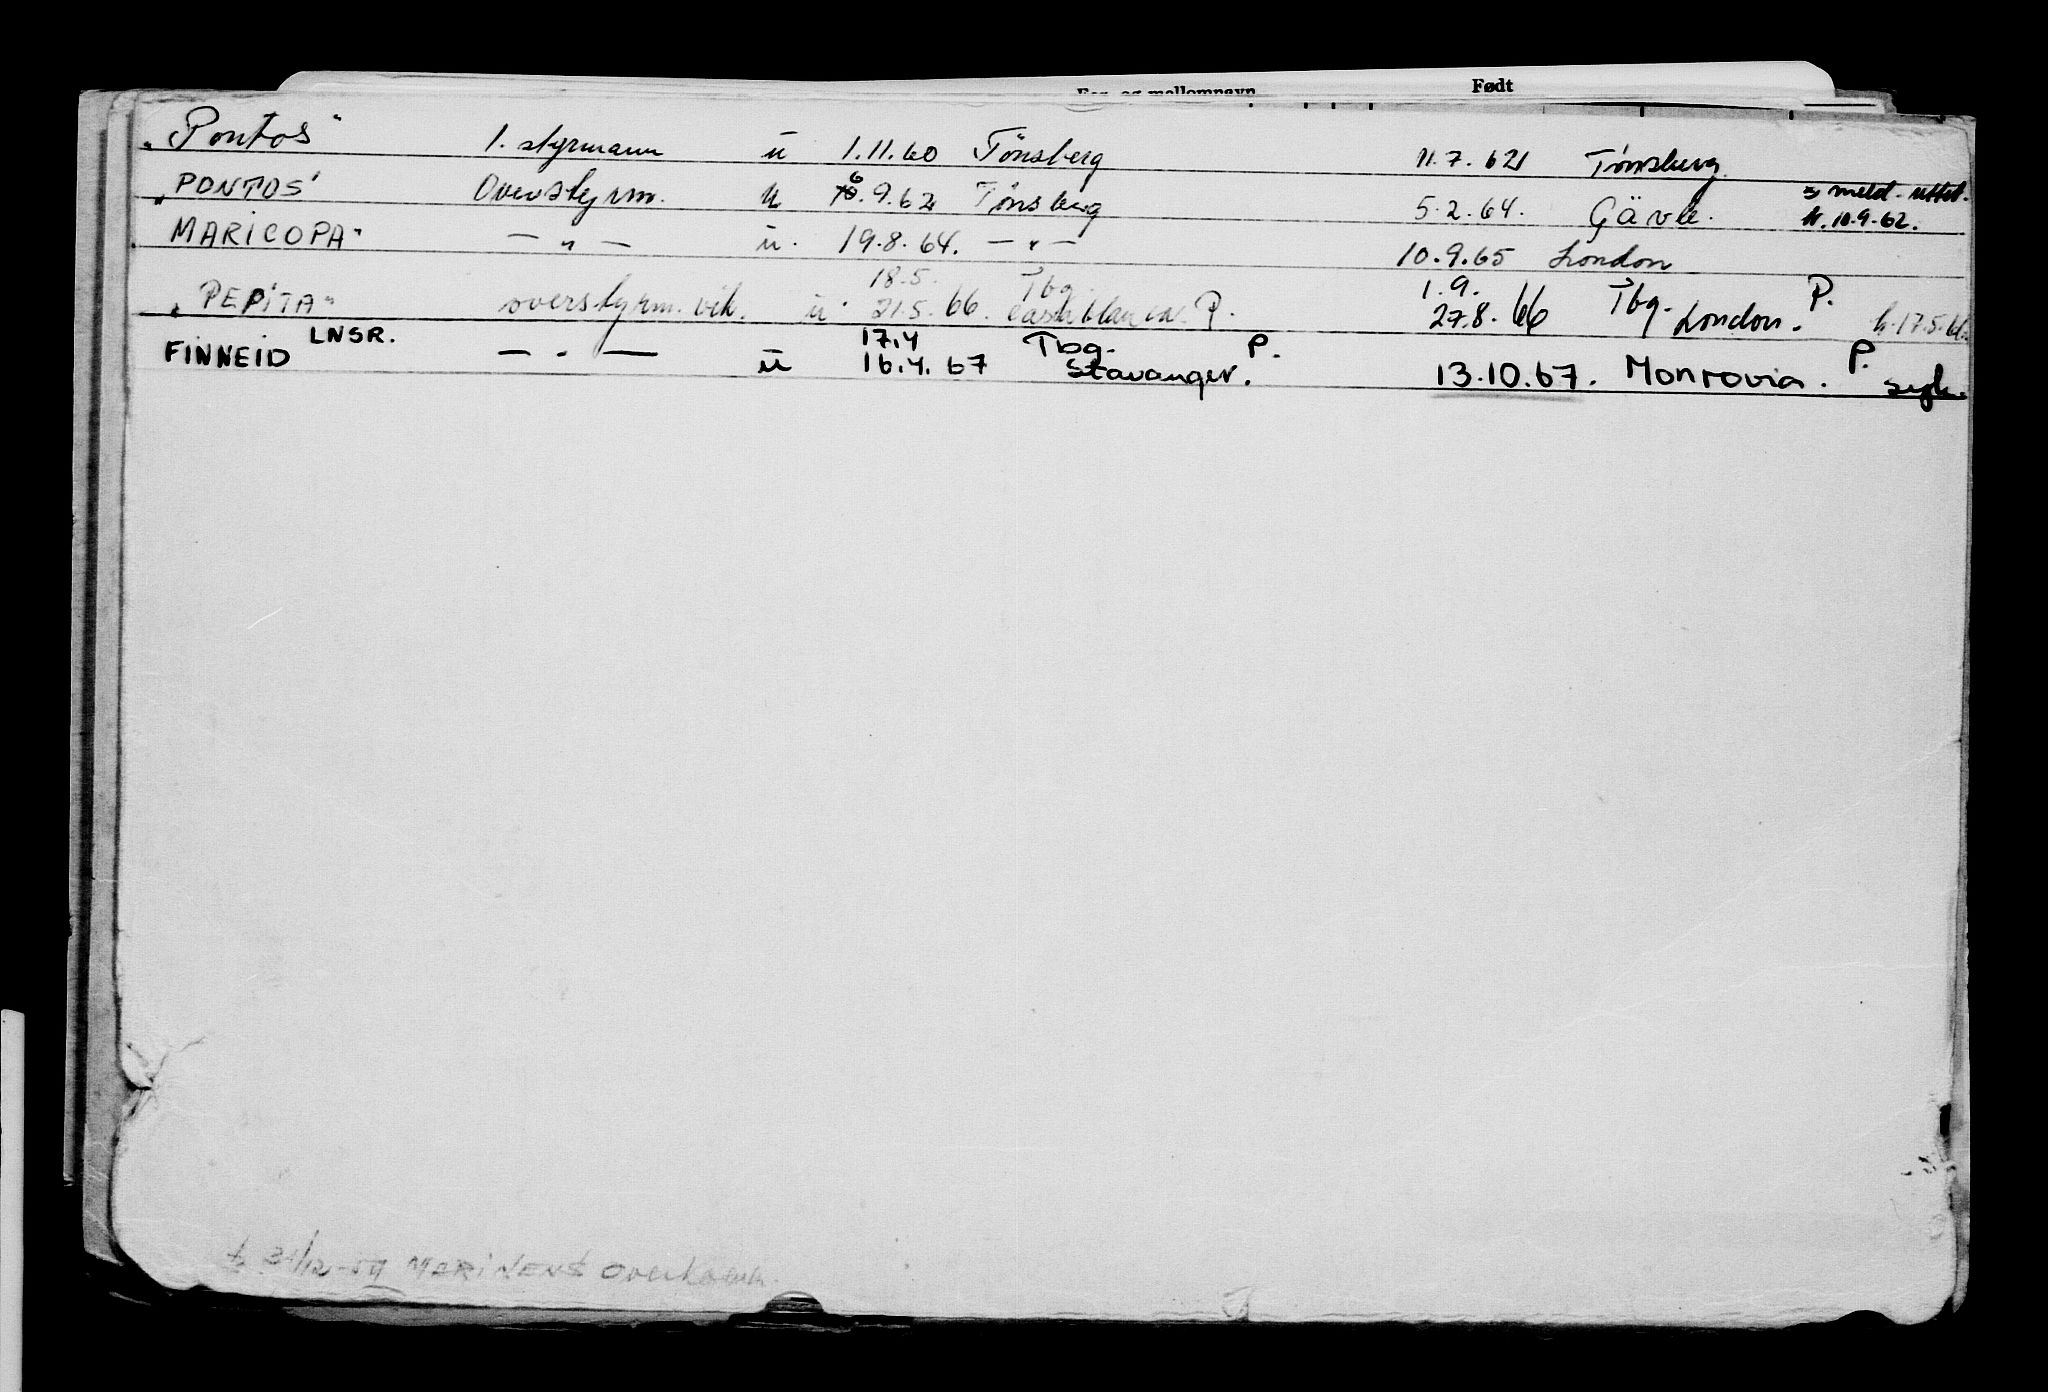 For- og mellomnavn Født
"Pontos" 1. styrmann u 1.11.60 Tönsberg 11.7.62 Tönsberg
"PONTOS" Overstyrm. u 6.9.62 Tönsberg 5.2.64. Gävle. meld. h. 10.9.62.
MARICOPA" — " — u. 19.8.64. — " — 10.9.65 London
18.5. Tbg. 1.9. Tbg. P.
"PEPITA" overstyrm. vik. u. 21.5.66. Casablanca. P. 27.8.66 London. h. 17.5.66.
LNSR. 17.4 Tbg. P.
FINNEID — " — u 16.4.67 Stavanger. 13.10.67. Monrovia. P. syk.
MARINENS Overkom.